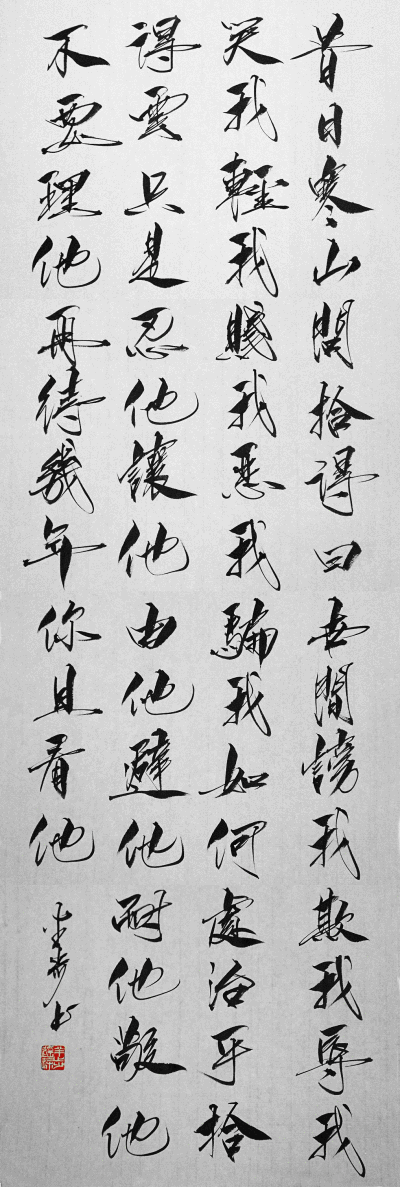 昔日寒山問拾得曰世間謗我欺我辱我
笑我輕我賤我惡我騙我如何處治乎拾
得雲只是忍他讓他由他避他耐他敬他
不要理他再待幾年你且看他